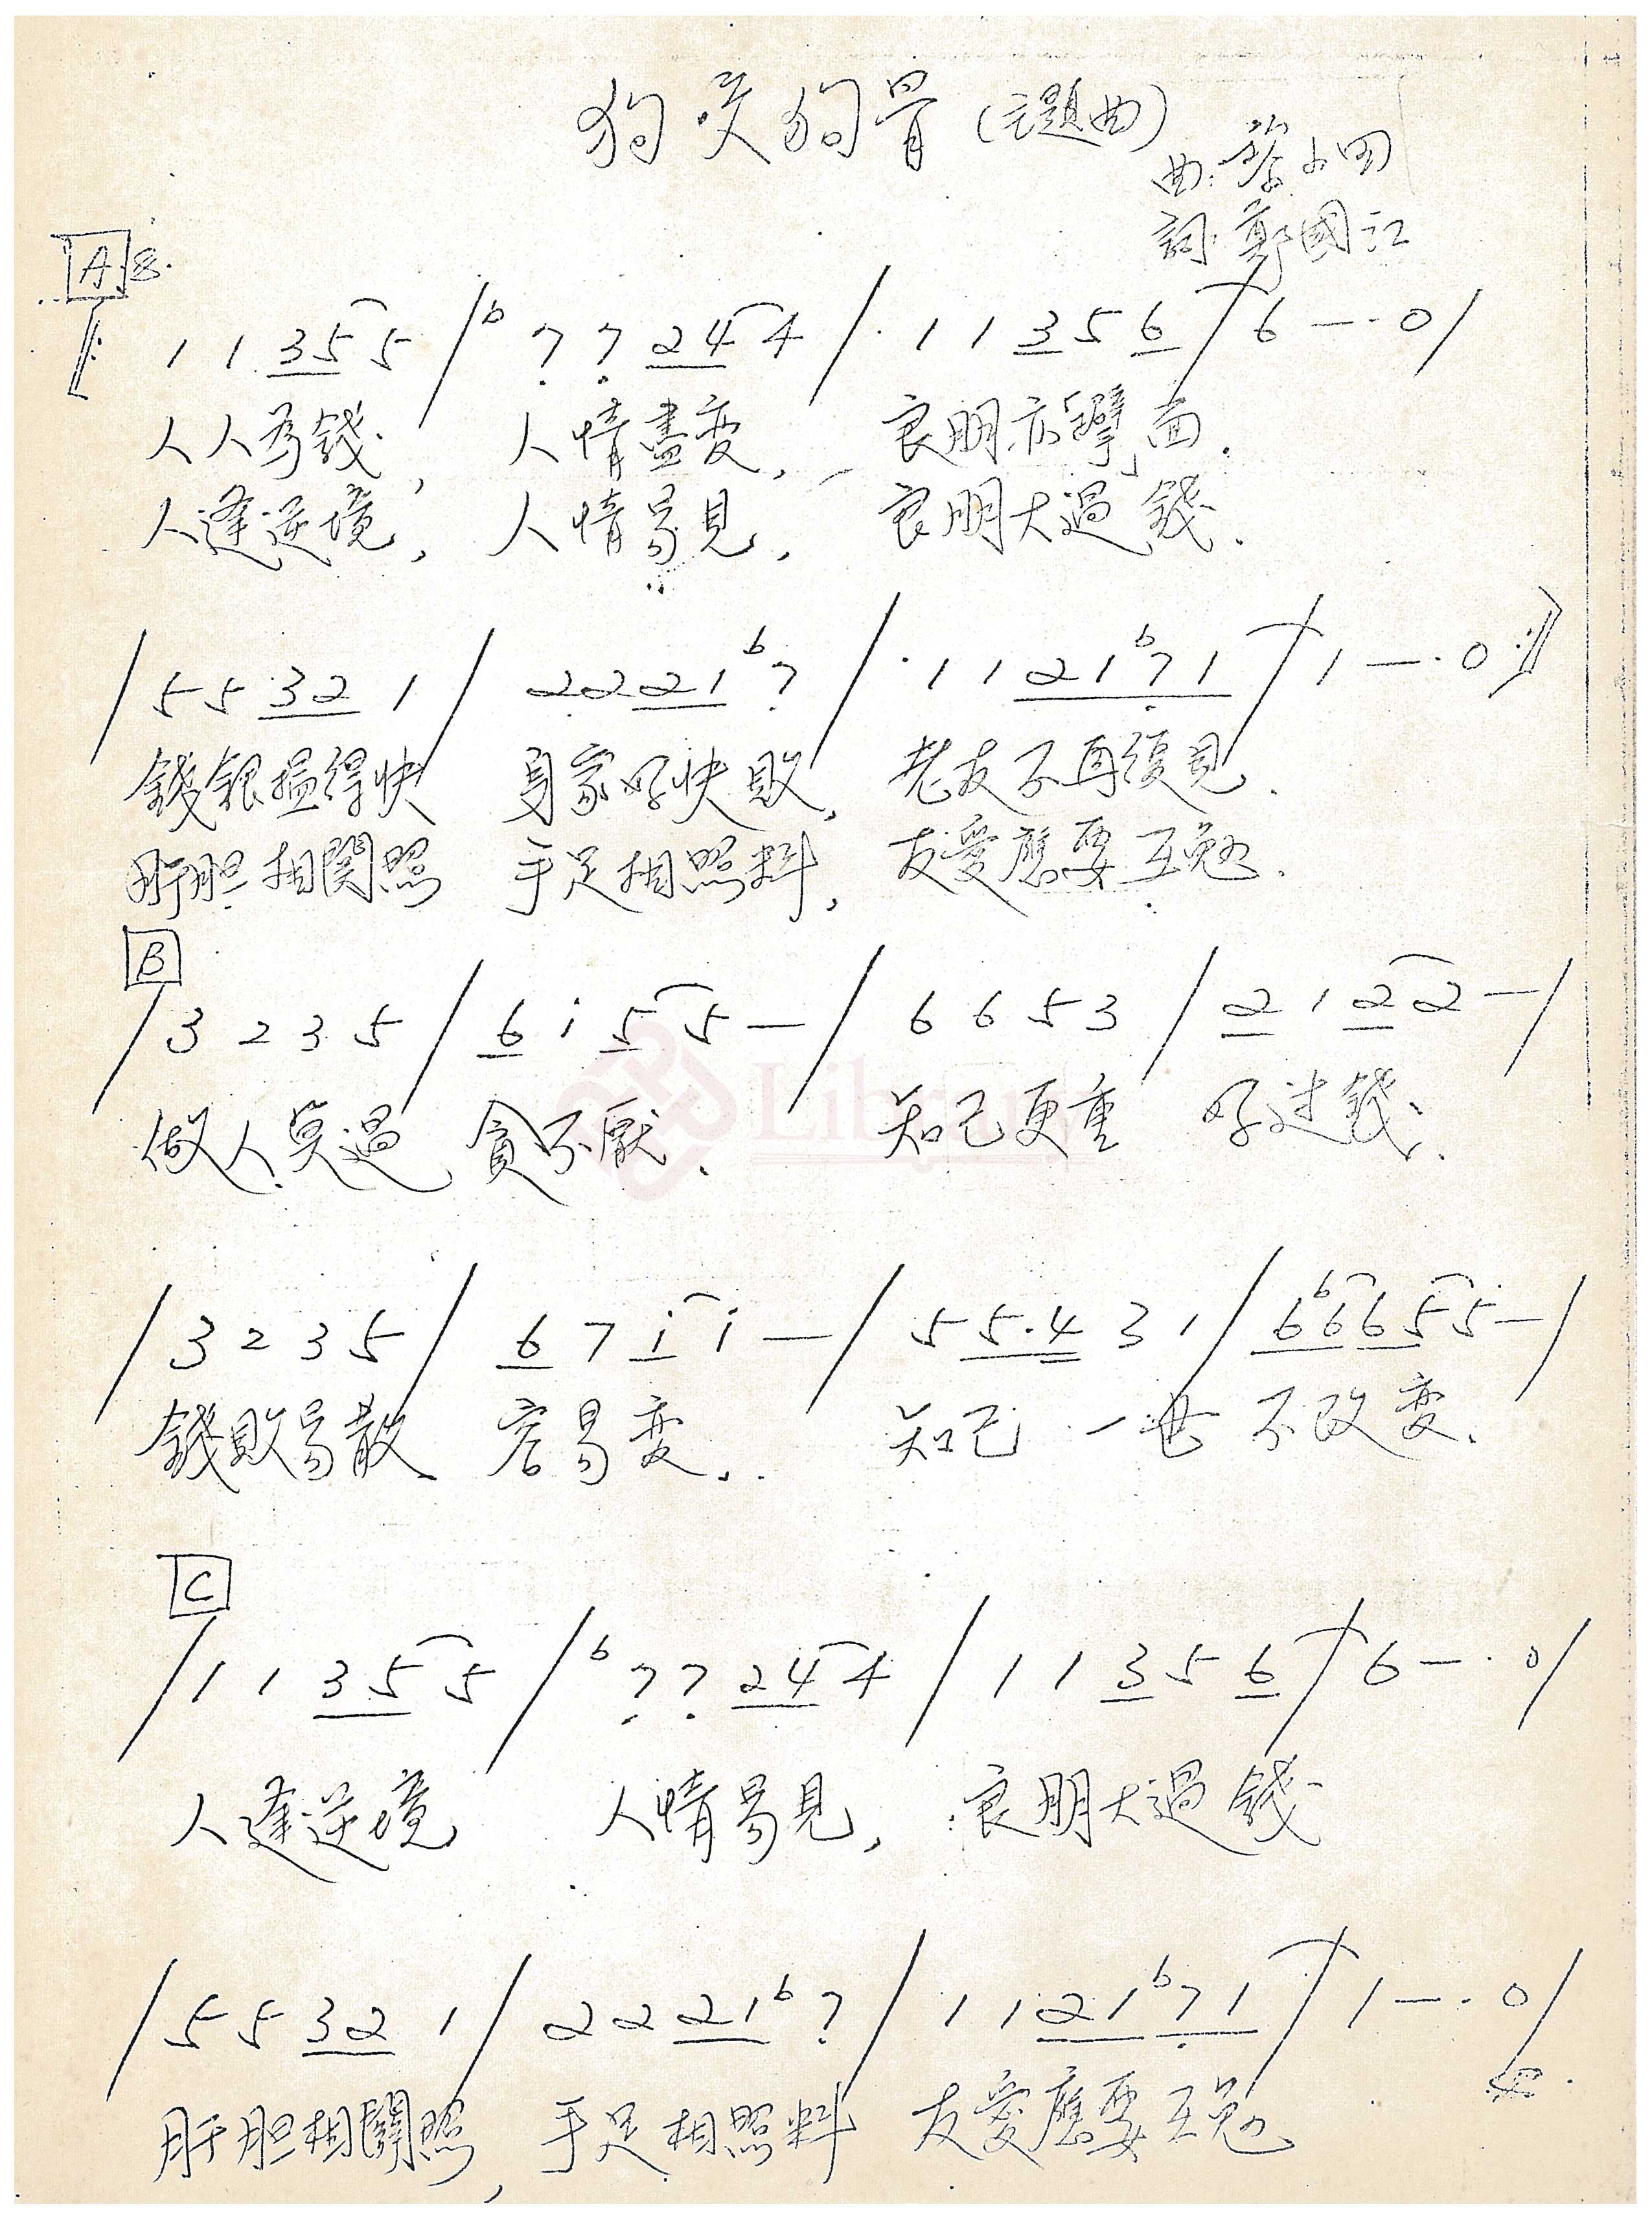 狗咬狗骨(主題曲)
曲:黎小田
詞:鄭國江
A
1 1 35 5 / b7 7 24 4 / 1 1 3 5 6 / 6 — · 0 /
人人為錢, 人情盡变, 良朋亦「擘」面.
人逢逆境, 人情易見, 良朋大過錢.
/ 5 5 32 1 / 2 2 21 b7 / 1 1 21 b71 / 1 — · 0 :
錢銀搵得快 身家好快敗, 老友不再復見.
肝胆相関照 手足相照料, 友愛應要互勉.
B
/ 3 2 3 5 / 6 i 5 5 — / 6 6 5 3 / 2 1 2 2 — /
做人莫過貪不厭. 知己更重 好过錢.
/ 3 2 3 5 / 6 7 i i — / 5 5·4 3 1 / 6b6 65 5 — /
錢財易散 容易变. 知己一世不改变.
C
/ 1 1 35 5 / b7 7 24 4 / 1 1 3 5 6 / 6 — · 0 /
人逢逆境 人情易見, 良朋大過錢
/ 5 5 32 1 / 2 2 21 b7 / 1 1 21 b71 / 1 — · 0 /
肝胆相關照, 手足相照料 友愛應要互勉
Library